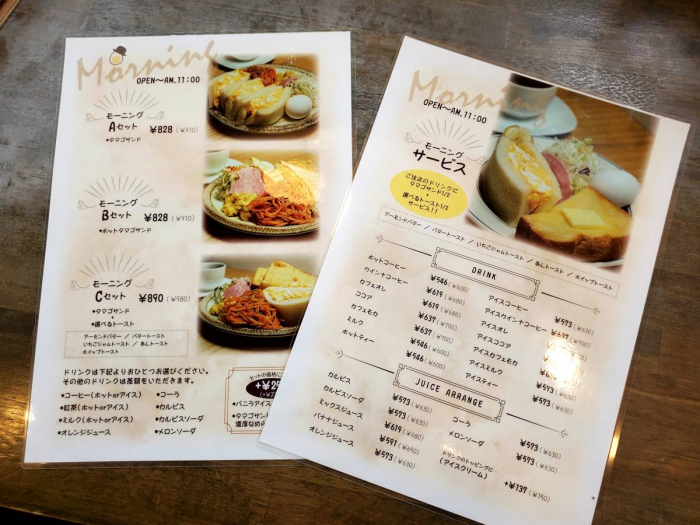 Morning
OPEN〜AM.11:00
モーニング
Aセット ¥828(¥910)
•タマゴサンド
モーニング
Bセット ¥828(¥910)
•ホットタマゴサンド
モーニング
Cセット ¥890(¥980)
•タマゴサンド
•選べるトースト
アーモンドバター / バタートースト
いちごジャムトースト / あんトースト
ホイップトースト
ドリンクは下記よりおひとつお選びください。
その他のドリンクは差額をいただきます。
•コーヒー(ホットorアイス)
•紅茶(ホットorアイス)
•ミルク(ホットorアイス)
•オレンジジュース
•コーラ
•カルピス
•カルピスソーダ
•メロンソーダ
セットの価格に
•バニラアイス
•タマゴサン
濃厚なめ
Morning
OPEN〜AM.11:00
モーニング
サービス
ご注文のドリンクに
タマゴサンド1/2
+
選べるトースト1/2
サービス!!
アーモンドバター / バタートースト / いちごジャムトースト / あんトースト / ホイップトースト
DRINK
ホットコーヒー ¥546(¥600)
ウインナコーヒー ¥619(¥680)
カフェオレ ¥619(¥680)
ココア ¥637(¥700)
カフェモカ ¥637(¥700)
ミルク ¥546(¥600)
ホットティー ¥546(¥600)
アイスコーヒー ¥573(¥630)
アイスウインナコーヒー
アイスオレ
アイスココア
アイスカフェモカ
アイスミルク ¥573(¥630)
アイスティー ¥573(¥630)
JUICE ARRANGE
カルピス ¥573(¥630)
カルピスソーダ ¥573(¥630)
ミックスジュース ¥619(¥680)
バナナジュース ¥591(¥650)
オレンジジュース ¥573(¥630)
コーラ ¥573(¥630)
メロンソーダ ¥573(¥630)
ドリンクのトッピングに
(アイスクリーム) +¥137(¥150)